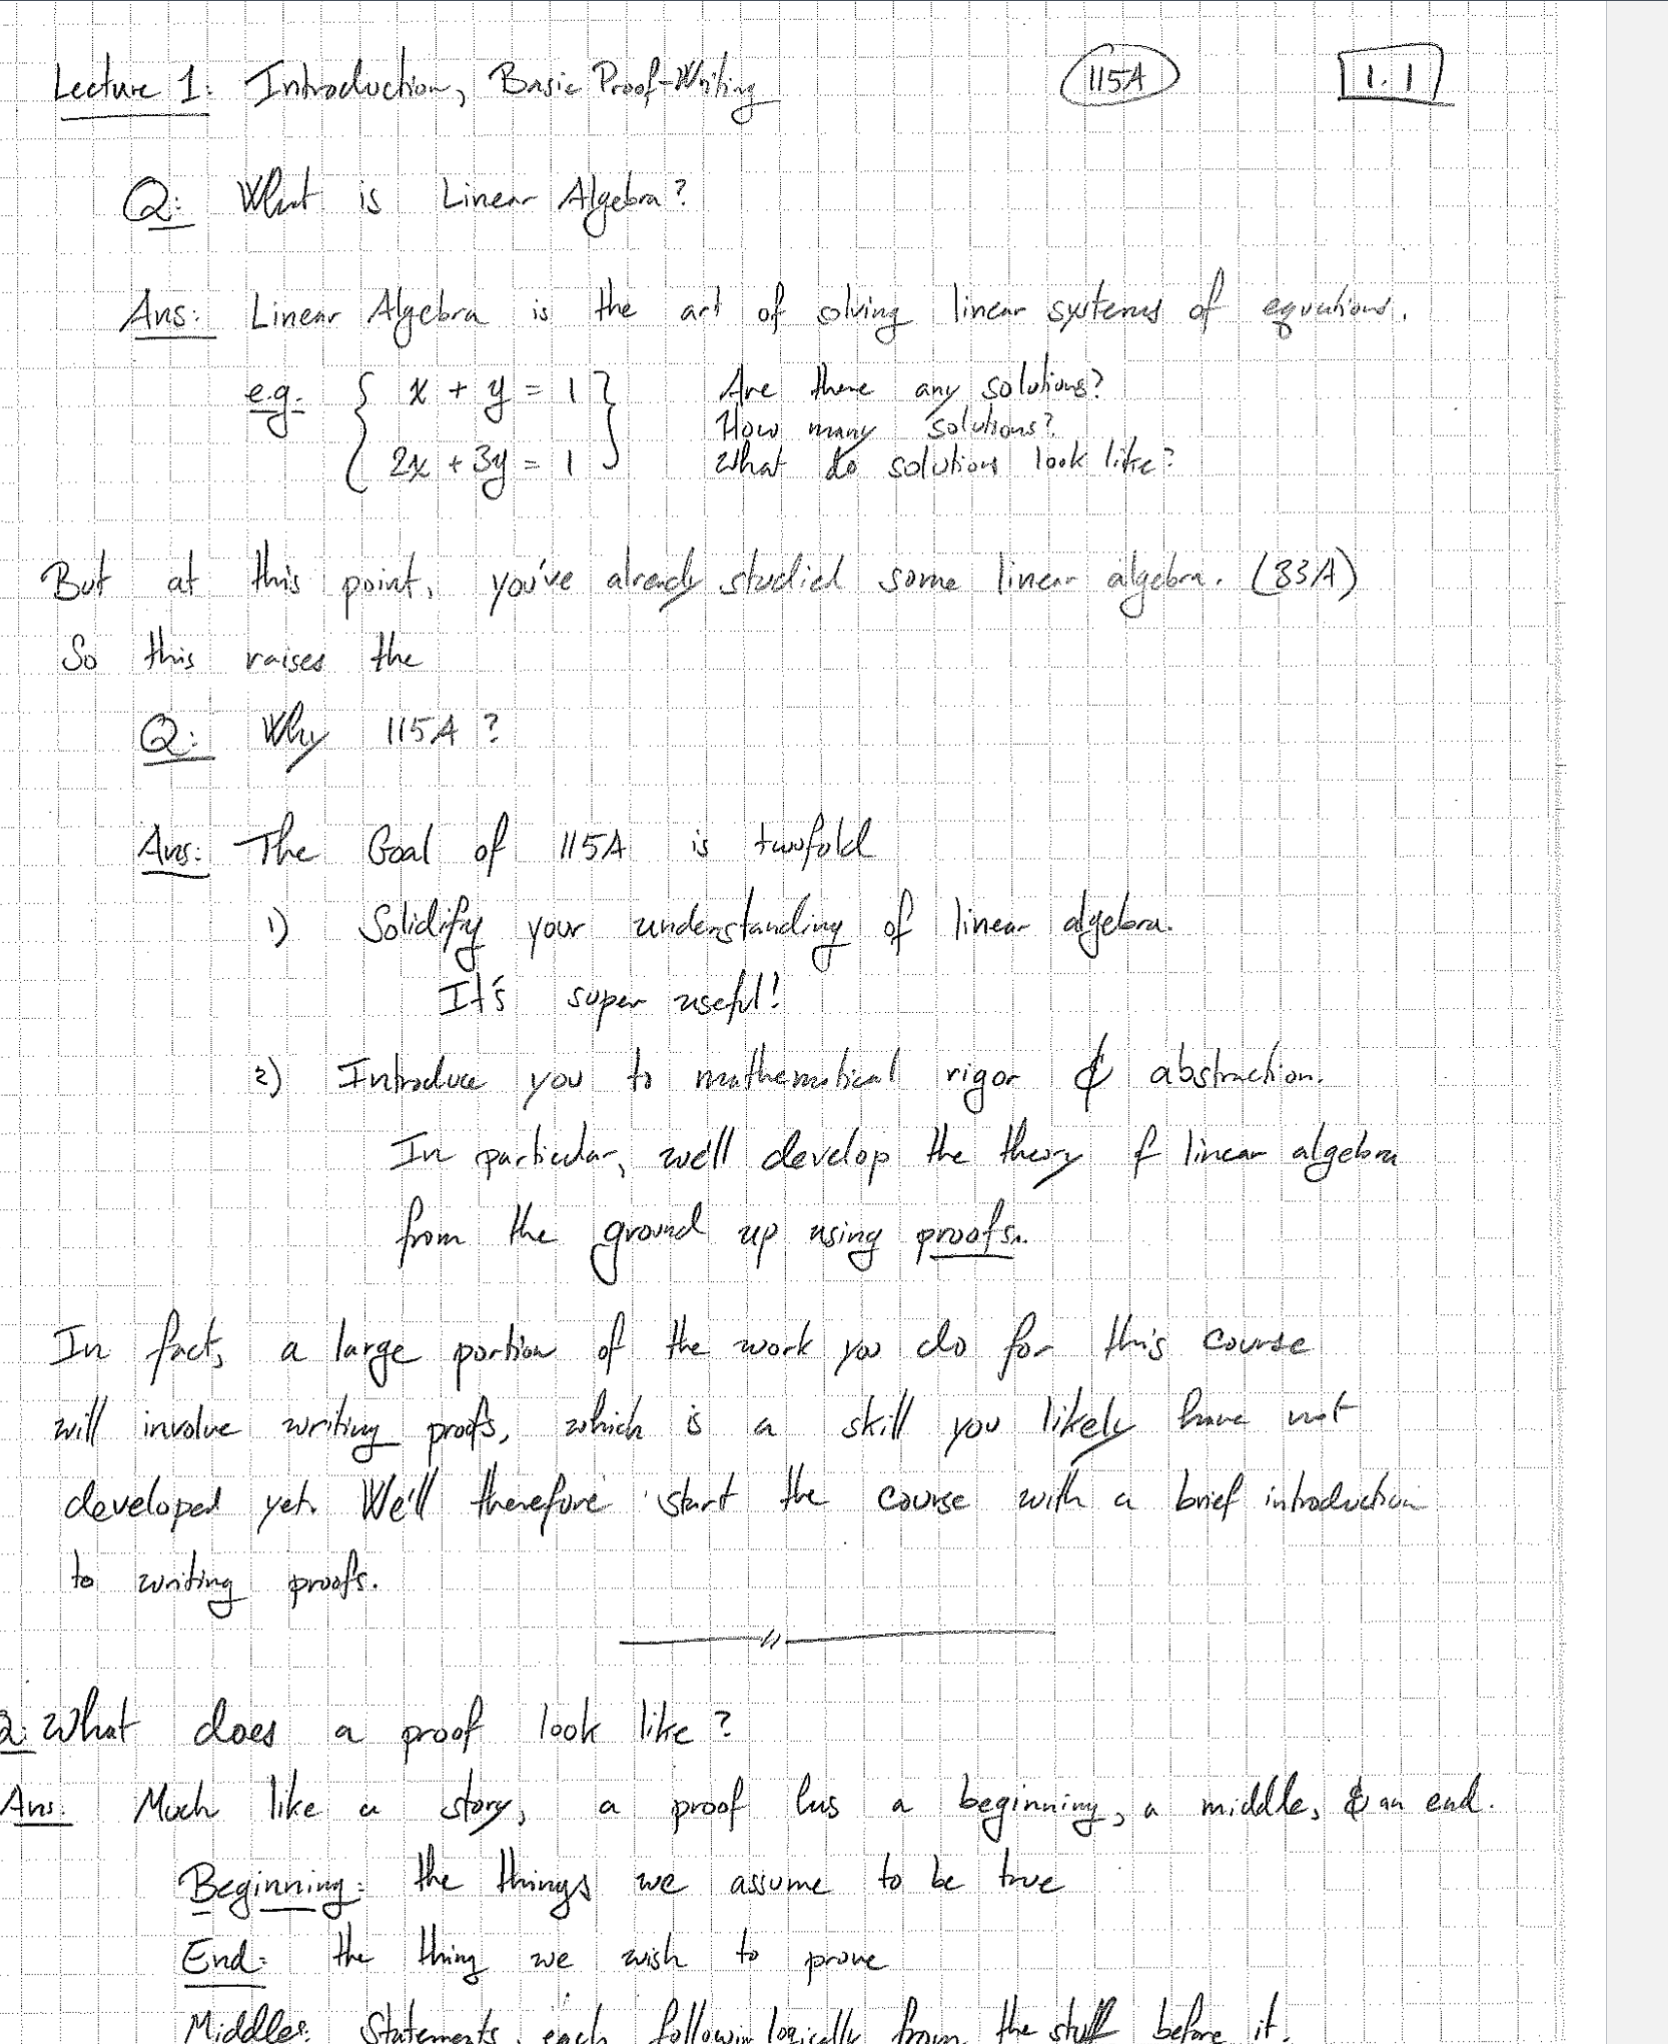 Lecture 1: Introduction, Basic Proof-Writing 115A 1.1
Q: What is Linear Algebra?
Ans: Linear Algebra is the art of solving linear systems of equations.
e.g. { x + y = 1 } Are there any solutions?
How many solutions?
2x + 3y = 1 What do solutions look like?
But at this point, you've already studied some linear algebra. (33A)
So this raises the
Q: Why 115A?
Ans: The Goal of 115A is twofold
1) Solidify your understanding of linear algebra.
It's super useful!
2) Introduce you to mathematical rigor & abstraction.
In particular, we'll develop the theory of linear algebra
from the ground up using proofs.
In fact, a large portion of the work you do for this course
will involve writing proofs, which is a skill you likely have not
developed yet. We'll therefore start the course with a brief introduction
to writing proofs.
Q: What does a proof look like?
Ans: Much like a story, a proof has a beginning, a middle, & an end.
Beginning: the things we assume to be true
End: the thing we wish to prove
Middle: Statements, each following logically from the stuff before it.